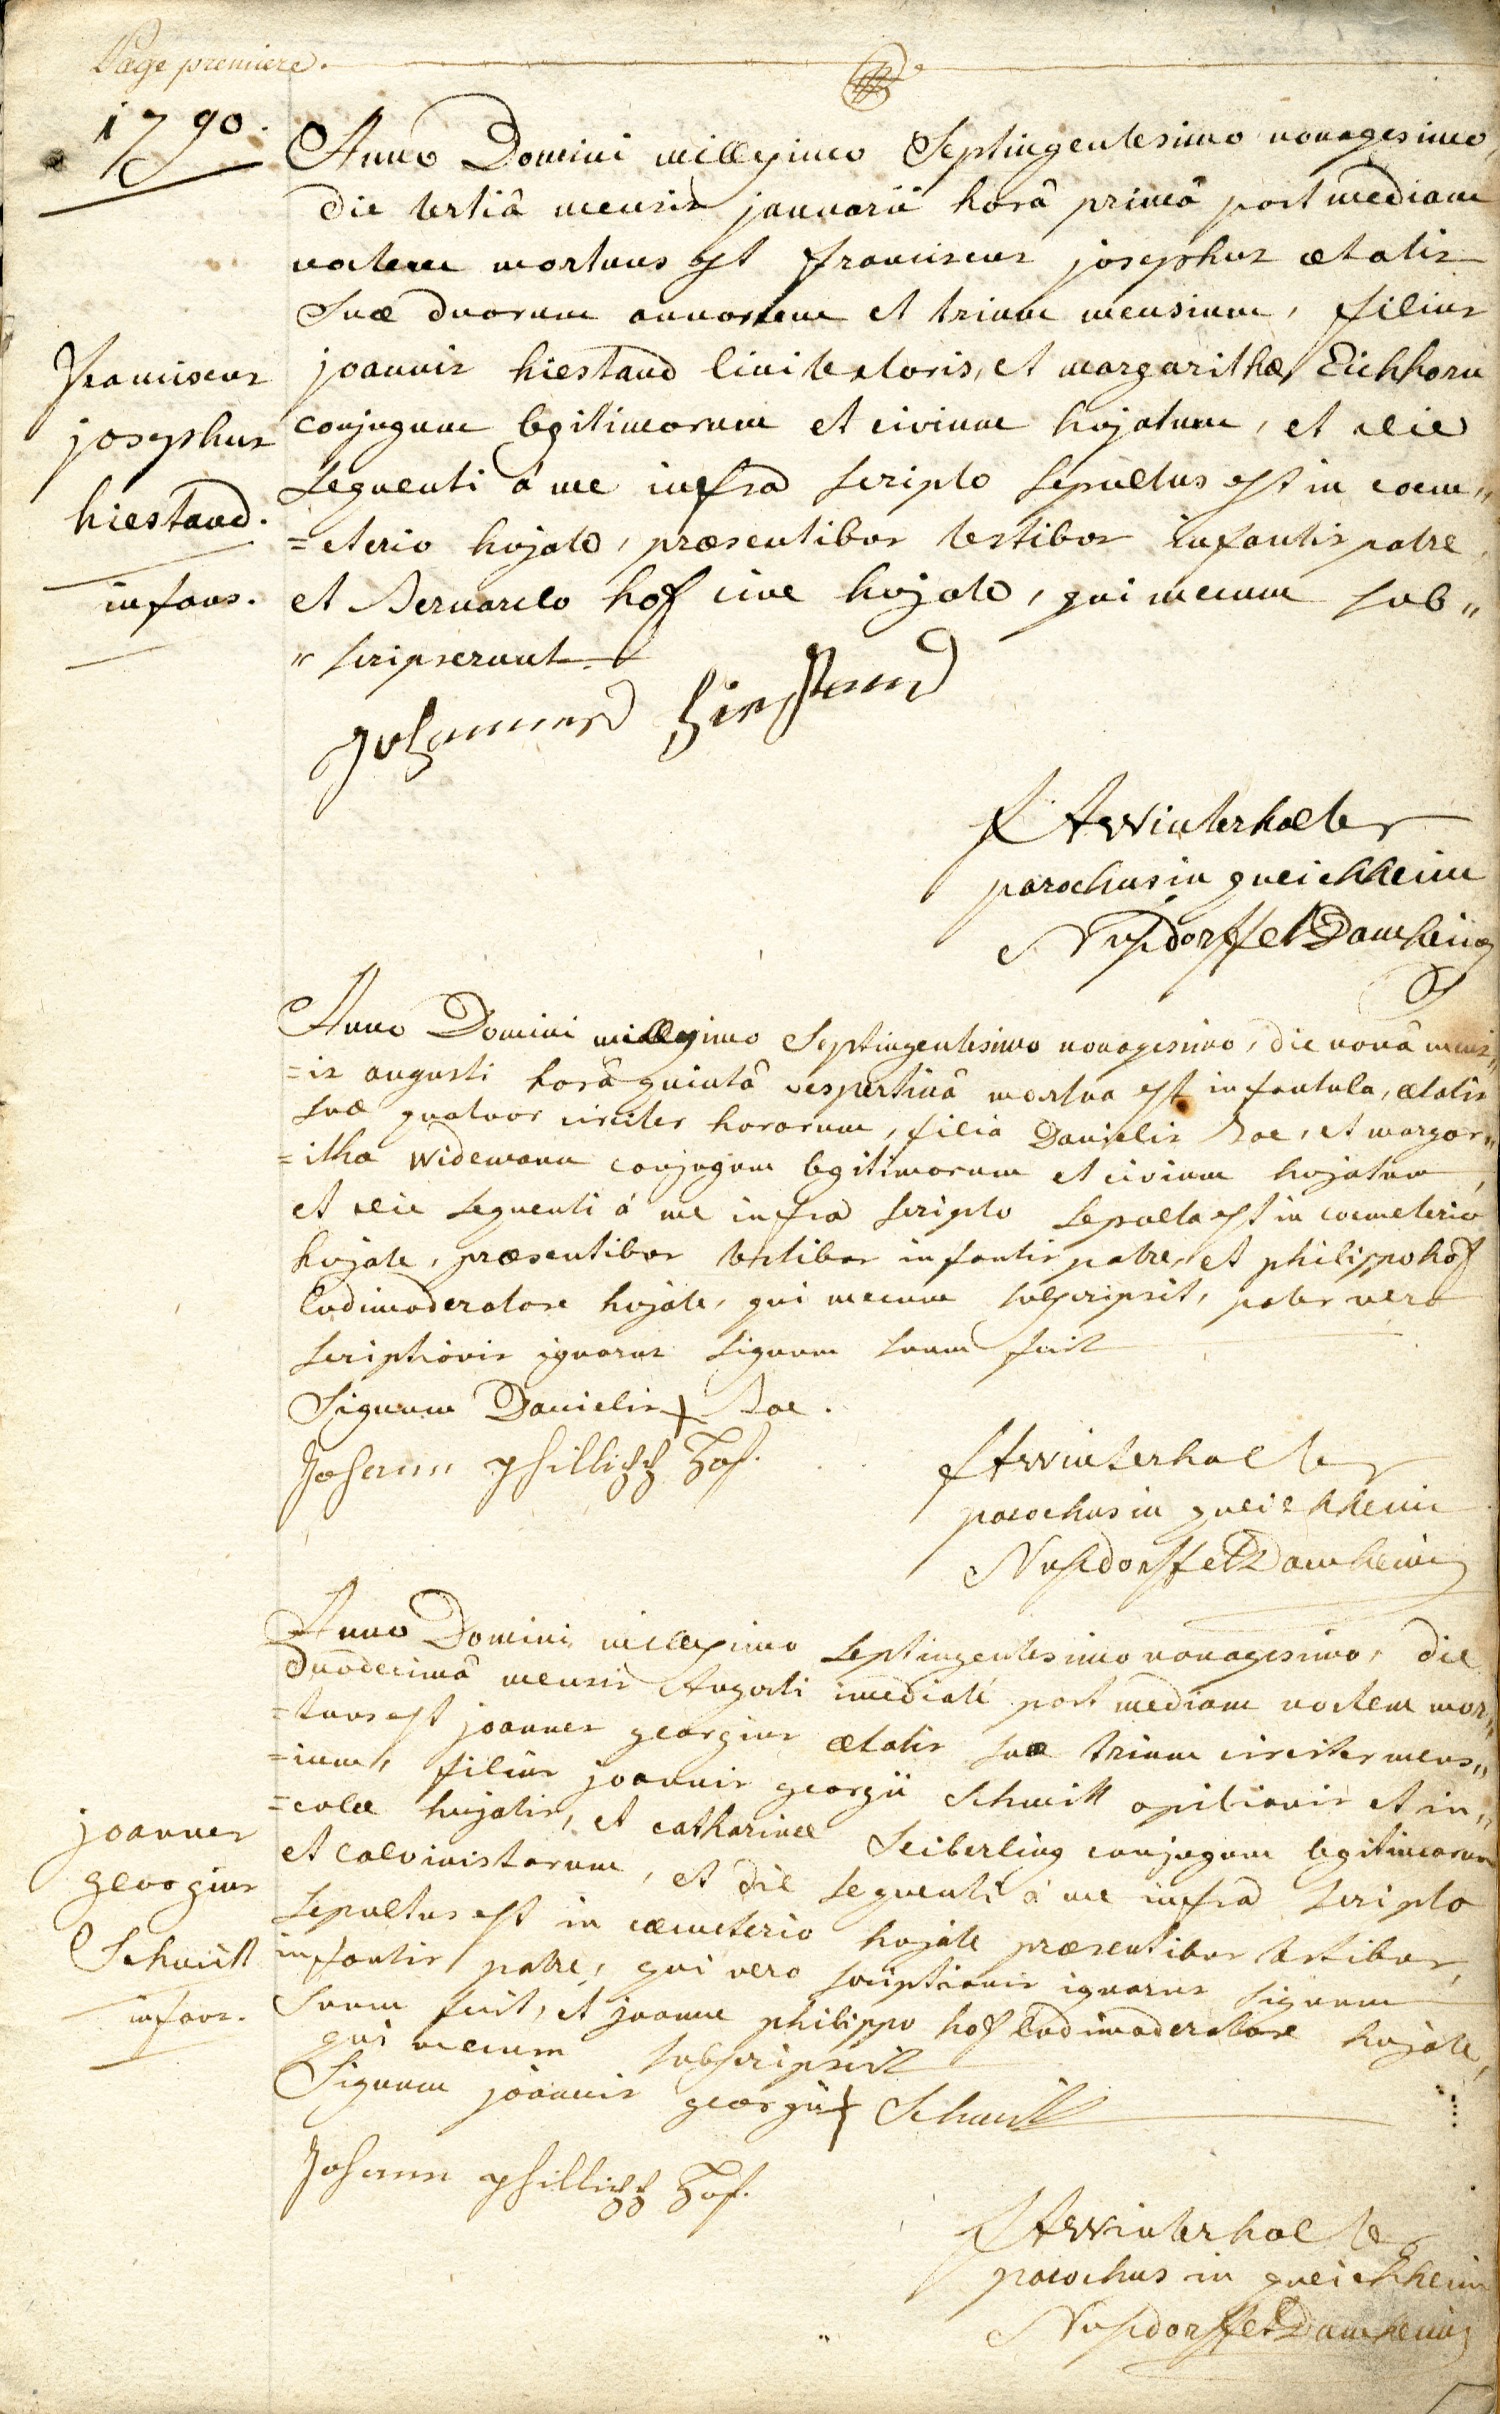 Page premiere.
1790.
Anno Domini millesimo Septingentesimo nonagesimo,
die tertiâ mensis januarii horâ primâ post mediam
noctem mortuus est franciscus josephus ætatis
suæ duorum annorum et trium mensium, filius
joannis hiestand linitextoris, et margarithæ Eichhorn
conjugum legitimorum et civium hujatum, et die
sequenti á me infra scripto sepultus est in coem„
=eterio hujate, præsentibus testibus infantis patre,
et Bernardo hof cive hujate, qui mecum sub„
„scripserunt.
franciscus
josephus
hiestand.
infans.
Johannes Hiestand
FAWinterhalter
parochus in queichheim
Nusdorff et Damheim
Anno Domini millesimo Septingentesimo nonagesimo, die nonâ mens„
=is augusti horâ quintâ vespertinâ mortua est infantula, ætatis
suæ quatuor circiter horarum, filia Danielis Boe, et margar„
=itha Widemann conjugum legitimorum et civium hujatum,
et die sequenti á me infra scripto sepulta est in coemeterio
hujate, præsentibus testibus infantis patre, et philippo hof
ludimoderatore hujate, qui mecum subscripsit, pater vero
scriptionis ignarus signum suum fecit
Signum Danielis + Boe.
Johann Phillipp Hof.
FAWinterhalter
parochus in queichheim
Nusdorff et Damheim
Anno Domini millesimo Septingentesimo nonagesimo, die
duodecimâ mensis Augusti imediaté post mediam noctem mor„
=tuus est joannes georgius ætatis suæ trium circiter mens„
=ium, filius joannis georgii Schmitt opilionis et in„
=colæ hujatis, et catharinæ Seiberling conjugum legitimorum
et calvinistarum, et die sequenti á me infra scripto
sepultus est in cæmeterio hujate præsentibus testibus,
infantis patre, qui vero scriptionis ignarus signum
suum fecit, et joanne philippo hof ludimoderatore hujate,
qui mecum subscripsit
joannes
georgius
Schmitt
infans.
Signum joannis georgii + Schmitt
Johann Phillipp Hof.
FAWinterhalter
parochus in queichheim
Nusdorff et Damheim